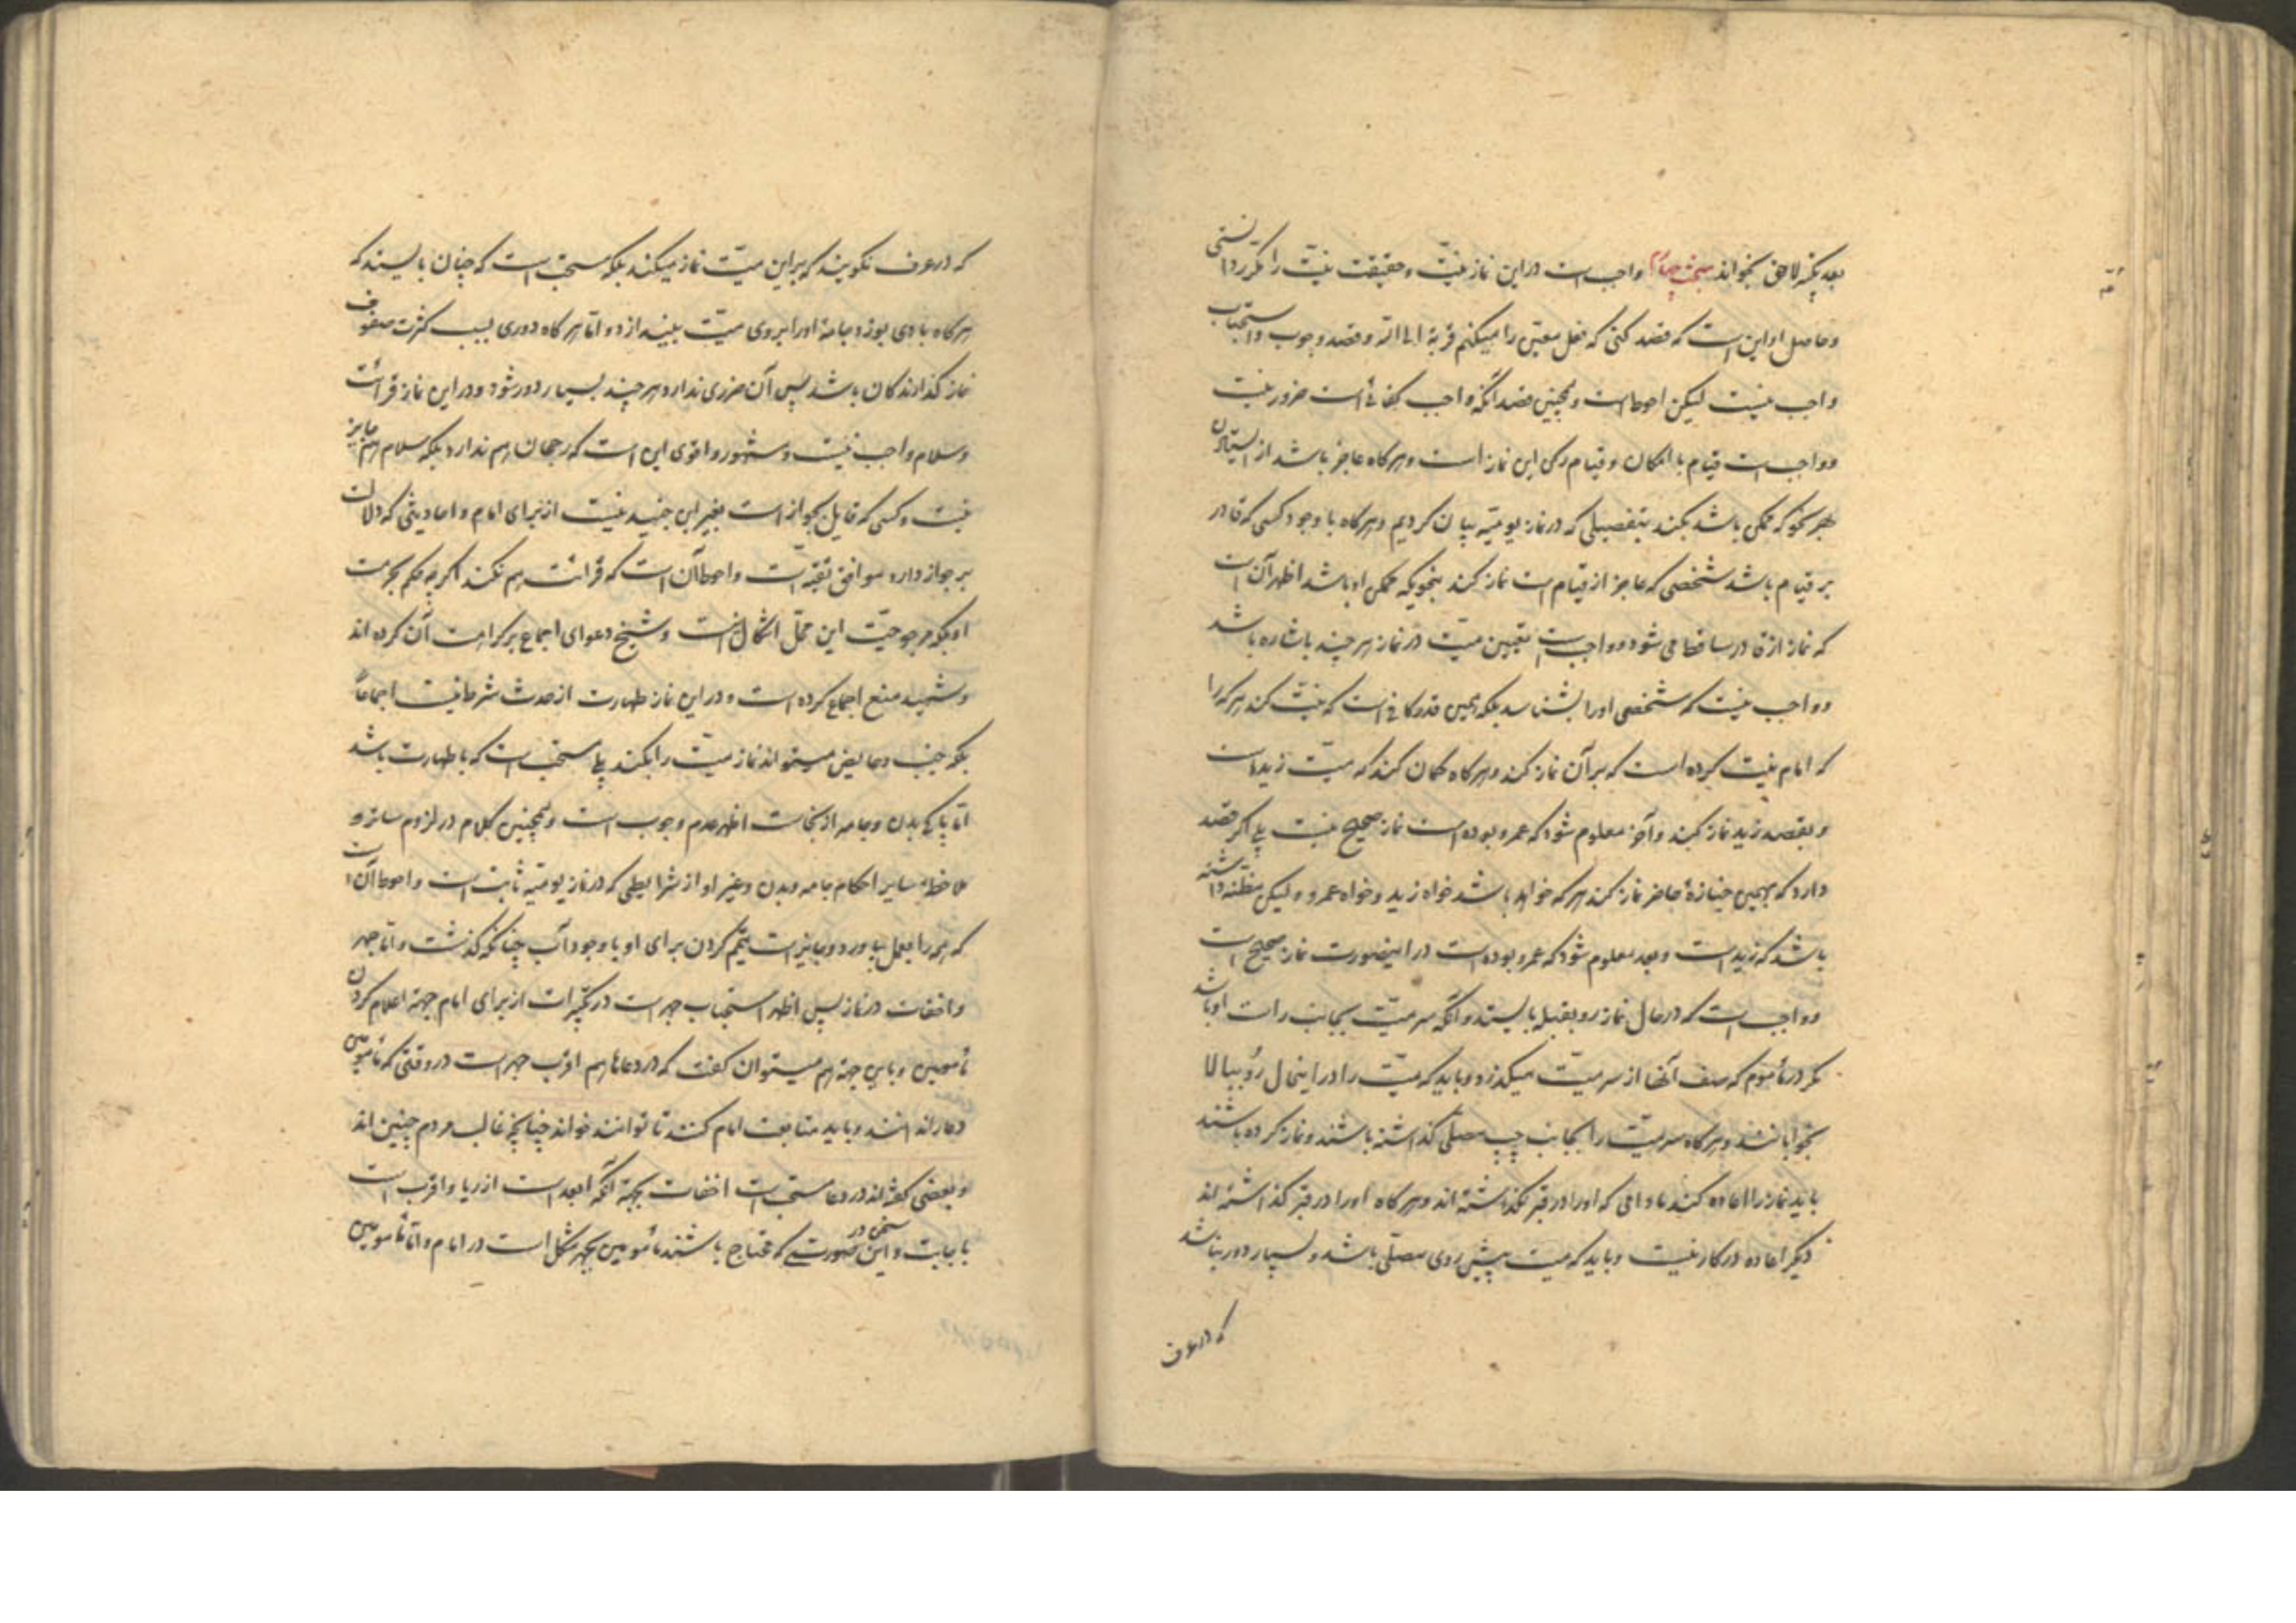 بعد تکبیر لاحق بخواند مبحث چهارم واجب است در این نماز نیت و حقیقت نیت را مکرر دانستی
و حاصل او این است که قصد کنی که فعل معین را میکنم قربة الی الله و قصد وجوب و استحباب
واجب نیست لیکن احوط است و همچنین قصد آنکه واجب کفائی است ضرور نیست
و واجب است قیام با امکان و قیام رکن این نماز است و هرگاه عاجز باشد از ایستادن
بهر نحو که ممکن باشد بکند بتفصیلی که در نماز یومیه بیان کردیم و هرگاه با وجود کسی که قادر
بر قیام باشد شخصی که عاجز از قیام است نماز کند بنحویکه ممکن او باشد اظهر آن است
که نماز از قادر ساقط می شود و واجب است تعیین میت در نماز هر چند باشاره باشد
و واجب نیست که شخصی او را بشناسد بلکه همین قدر کافی است که نیت کند هر که را
که امام نیت کرده است که بر آن نماز کند و هرگاه گمان کند که میت زید است
و بقصد زید نماز کند و آخر معلوم شود که عمرو بوده است نماز صحیح نیست بلی اگر قصد
دارد که بهمین جنازهٔ حاضر نماز کند هر که خواهد باشد خواه زید و خواه عمرو و لیکن مظنه داشته
باشد که زید است و بعد معلوم شود که عمرو بوده است در اینصورت نماز صحیح است
و واجب است که در حال نماز رو بقبله بایستد و آنکه سر میت بجانب راست او باشد
مگر در مأموم که صف آنها از سر میت میگذرد و باید که میت را در اینحال رو ببالا
بخوابانند و هرگاه سر میت را بجانب چپ مصلی گذاشته باشند و نماز کرده باشند
باید نماز را اعاده کنند مادامی که او را در قبر نگذاشته اند و هرگاه او را در قبر گذاشته اند
دیگر اعاده در کار نیست و باید که میت پیش روی مصلی باشد و بسیار دور نباشد
که در عرف
که در عرف نگویند که بر این میت نماز میکند بلکه مستحب است که چنان بایستد که
هرگاه بادی بوزد جامهٔ او را بروی میت بیندازد و اما هرگاه دوری بسبب کثرت صفوف
نماز گذارندگان باشد پس آن ضرری ندارد هر چند بسیار دور شود و در این نماز قرائت
و سلام واجب نیست و مشهور و اقوی این است که رجحان هم ندارد بلکه سلام هم جایز
نیست و کسی که قایل بجواز است بغیر ابن جنید نیست از برای امام و احادیثی که دلالت
بر جواز دارد موافق تقیه است و احوط آن است که قرائت هم نکند اگرچه حکم بحرمت
او بلکه مرجوحیت این محل اشکال است و شیخ دعوای اجماع بر کراهت آن کرده اند
و شهید منع اجماع کرده است و در این نماز طهارت از حدث شرط نیست اجماعاً
بلکه جنب و حایض میتواند نماز میت را بکند بلی مستحب است که با طهارت باشد
اما پاکی بدن و جامه از نجاست اظهر عدم وجوب است و همچنین کلام در لزوم ساتر و
ملاحظهٔ سایر احکام جامه و بدن و غیر او از شرایطی که در نماز یومیه ثابت است و احوط آن است
که همه را بعمل بیاورد و جایز است تیمم کردن برای او با وجود آب چنانکه گذشت و اما جهر
و اخفات در نماز پس اظهر استحباب جهر است در تکبیرات از برای امام جهة اعلام کردن
مأمومین و باین جهة هم میتوان گفت که در دعاها هم اقرب جهر است در وقتی که مأمومین
دعا را ندانند و باید متابعت امام کنند تا توانند خواند چنانچه غالب مردم چنین اند
و بعضی گفته اند در دعا مستحب است اخفات بجهة آنکه ابعد است از ریا و اقرب است
باجابت و این سخن در صورتی که محتاج باشند مأمومین بجهر مشکل است در امام و اما مأمومین